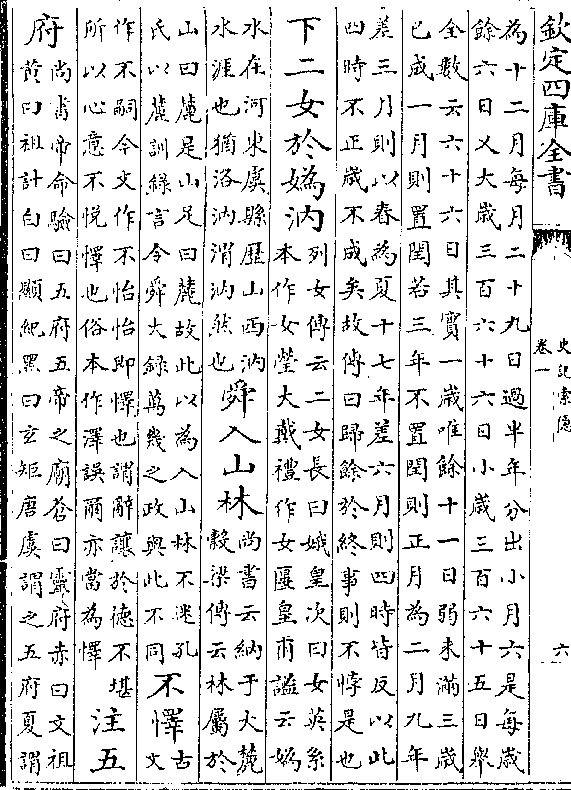 欽定四庫全書
史記索隱
卷一
六
為十二月每月二十九日過半年分出小月六是每歲
餘六日又大歲三百六十六日小歲三百六十五日舉
全數云六十六日其實一歲唯餘十一日弱未滿三歲
已成一月則置閏若三年不置閏則正月為二月九年
差三月則以春為夏十七年差六月則四時皆反以此
四時不正歲不成矣故傳曰歸餘於終事則不悖是也
下二女於媯汭
列女傳云二女長曰娥皇次曰女英系
本作女瑩大戴禮作女匽皇甫謐云媯
水在河東虞縣歷山西汭
水涯也猶洛汭渭汭然也
舜入山林
尚書云納于大麓
穀梁傳云林屬於
山曰麓是山足曰麓故此以為入山林不迷孔
氏以麓訓錄言令舜大錄萬幾之政與此不同
不懌
古
文
作不嗣今文作不怡怡即懌也謂辭讓於德不堪
所以心意不悅懌也俗本作澤誤爾亦當為懌
注五
府
尚書帝命驗曰五府五帝之廟蒼曰靈府赤曰文祖
黃曰祖計白曰顯紀黑曰玄矩唐虞謂之五府夏謂